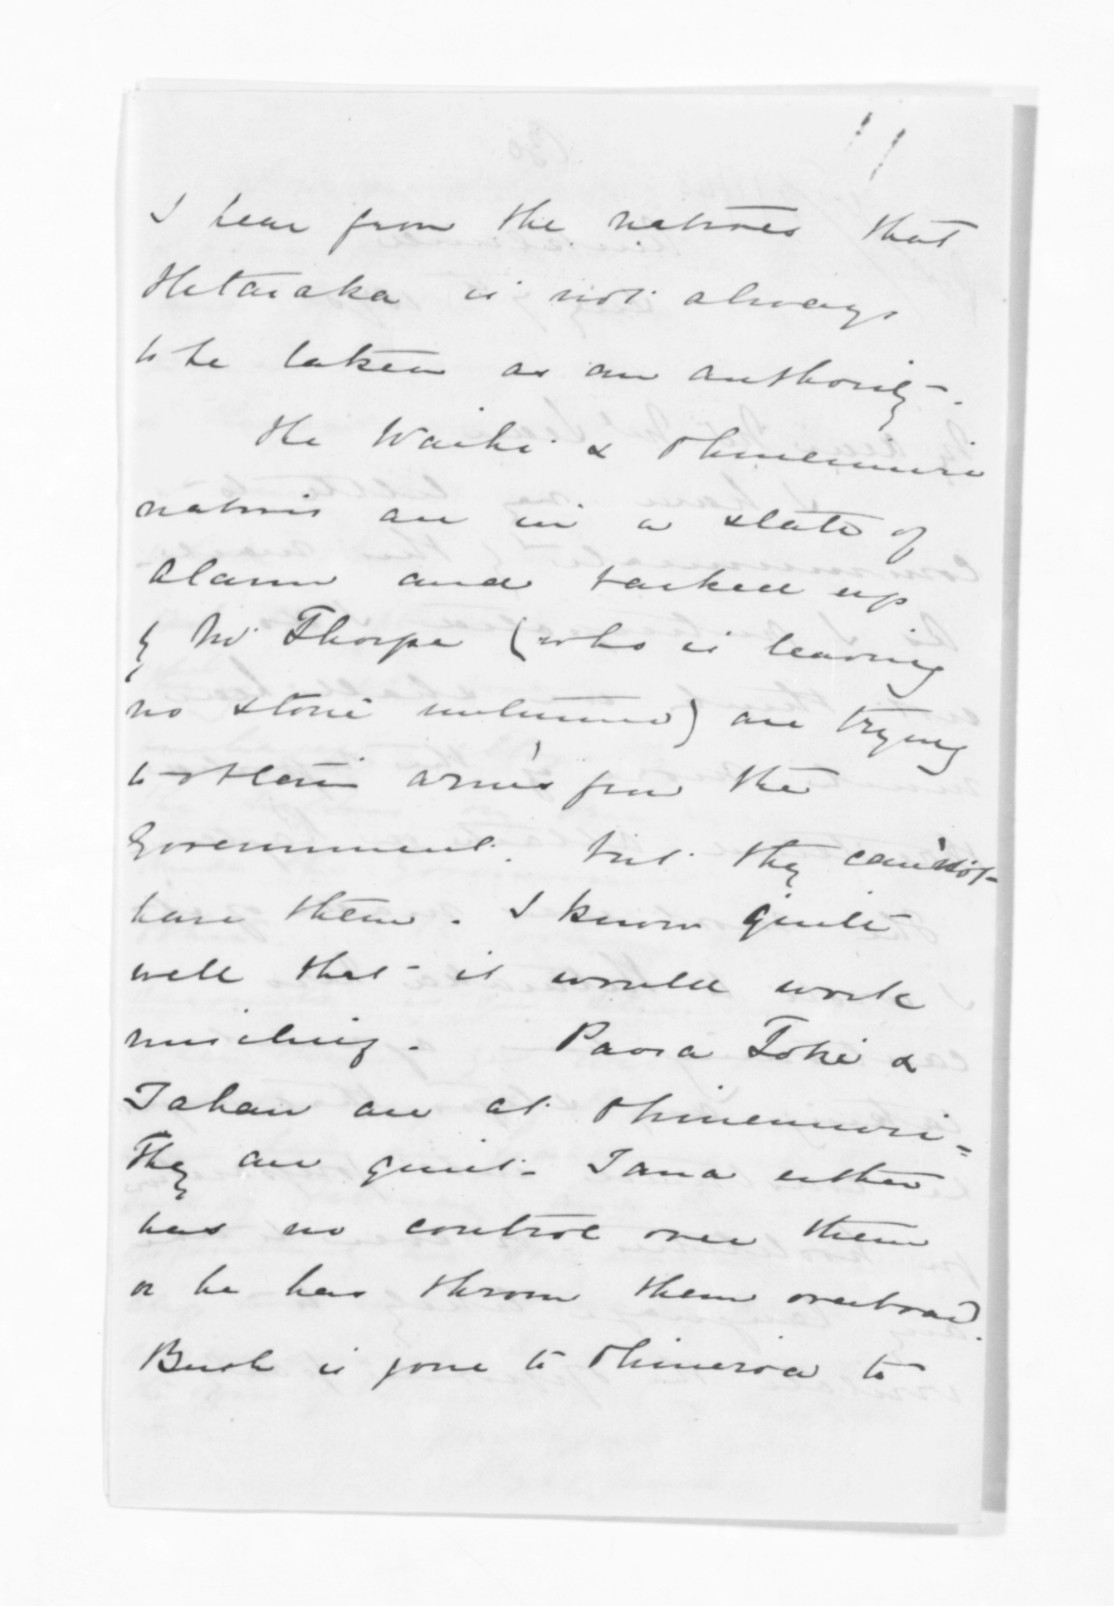 I hear from the natives that
Hetaraka is not always
to be taken as an authority.
The Waihi & Ohinemuri
natives are in a state of
alarm and backed up
by Mr Thorpe (who is leaving
no stone unturned) are trying
to obtain arms from the
Government. but they cannot
have them. I know quite
well that it would work
mischief. Paora Toki &
are at Ohinemuri -
They are quiet. Tana either
has no control over them
or he has thrown them overboard.
is gone to Ohineroa to